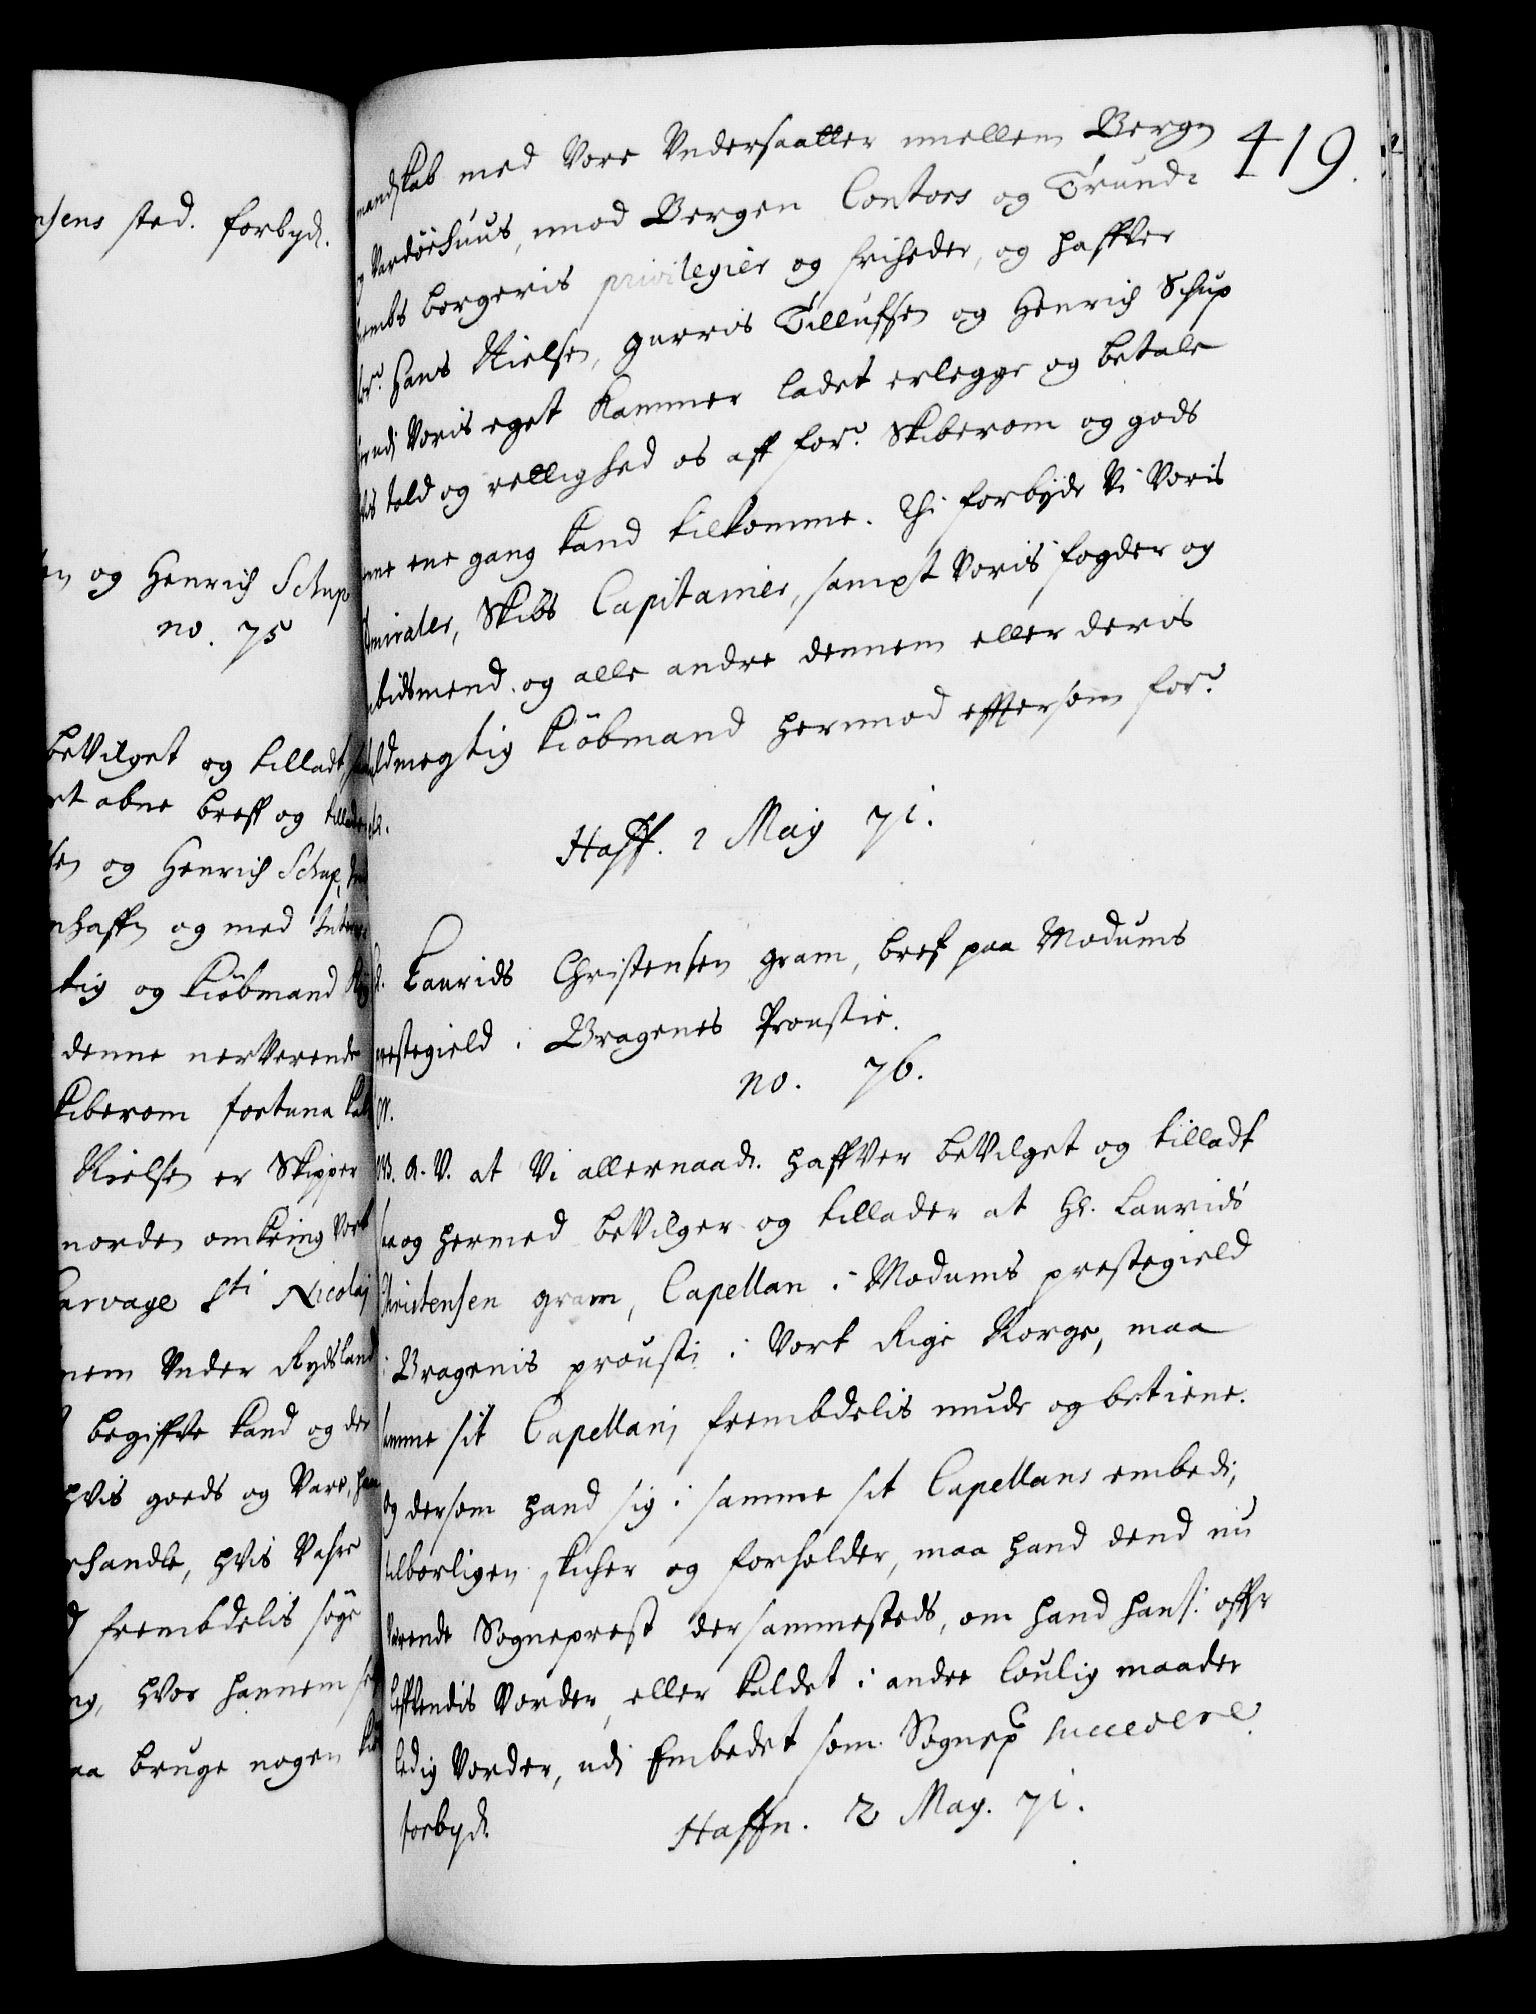 nsens sted. forbyd.
en og Henrich Schup
no. 75
beVilget og tilladt
et obne breff og
en og Henrich Schup,
nhaffn og med
tig og kiöbmand
denne nerVerende
kiberom fortuna
Nielsen er Skipper
norden omkring Vort
arvage Sti Nicolaj
nem Vnder Rydsland
begiffve kand og der
hVis goeds og Vare,
rhandle, hVis Vahre
frembdelis söge
ng, hVor hannem
aa bruge nogen
419.
mandskab med Vore Vndersaatter imellem Bergn
og Vardöehuus, imod Bergen Contors og Trund¬
hembs borgeris privilegier og friheder, og haffVer
for: Hans Nielsen, Garris Tilluffsen og Henrich Schup
udj Voris eget Kammer ladet erlegge og betale
told og rettighed os aff for: Skiberom og gods
ene gang kand tilkomme. Thi forbyde Vi Voris
Amiraler, Skibs Capitainer, sampt Voris fogder og
Embidsmend og alle andre dennem eller deris
fuldmegtig kiöbmand herimod eftersom for:
Haff. 2 Maij 71.
Laurids Christensen Gram, bref paa Modums
prestegield i Bragenes Proustie.
no. 76.
G. A. V. at Vi allernaad. haffVer beVilget og tilladt
saa og hermed beVilger og tillader at Hr. Laurids
Christensen Gram, Capellan i Modums prestegield
i Bragenis prousti i Vort Rige Norge, maa
samme sit Capellanj frembdelis niude og betiene.
Og dersom hand sig i samme sit Capellans embede,
tilborligen skicher og forholder, maa hand dend nu
Verende Sogneprest dersammesteds, om hand hans: offVer
leffVendis Vorder, eller kaldet i andre loulig maader
ledig Vorder, udi Embedet som Sognep: succedere.
forbyd. Haffn. 2 Maij. 71.